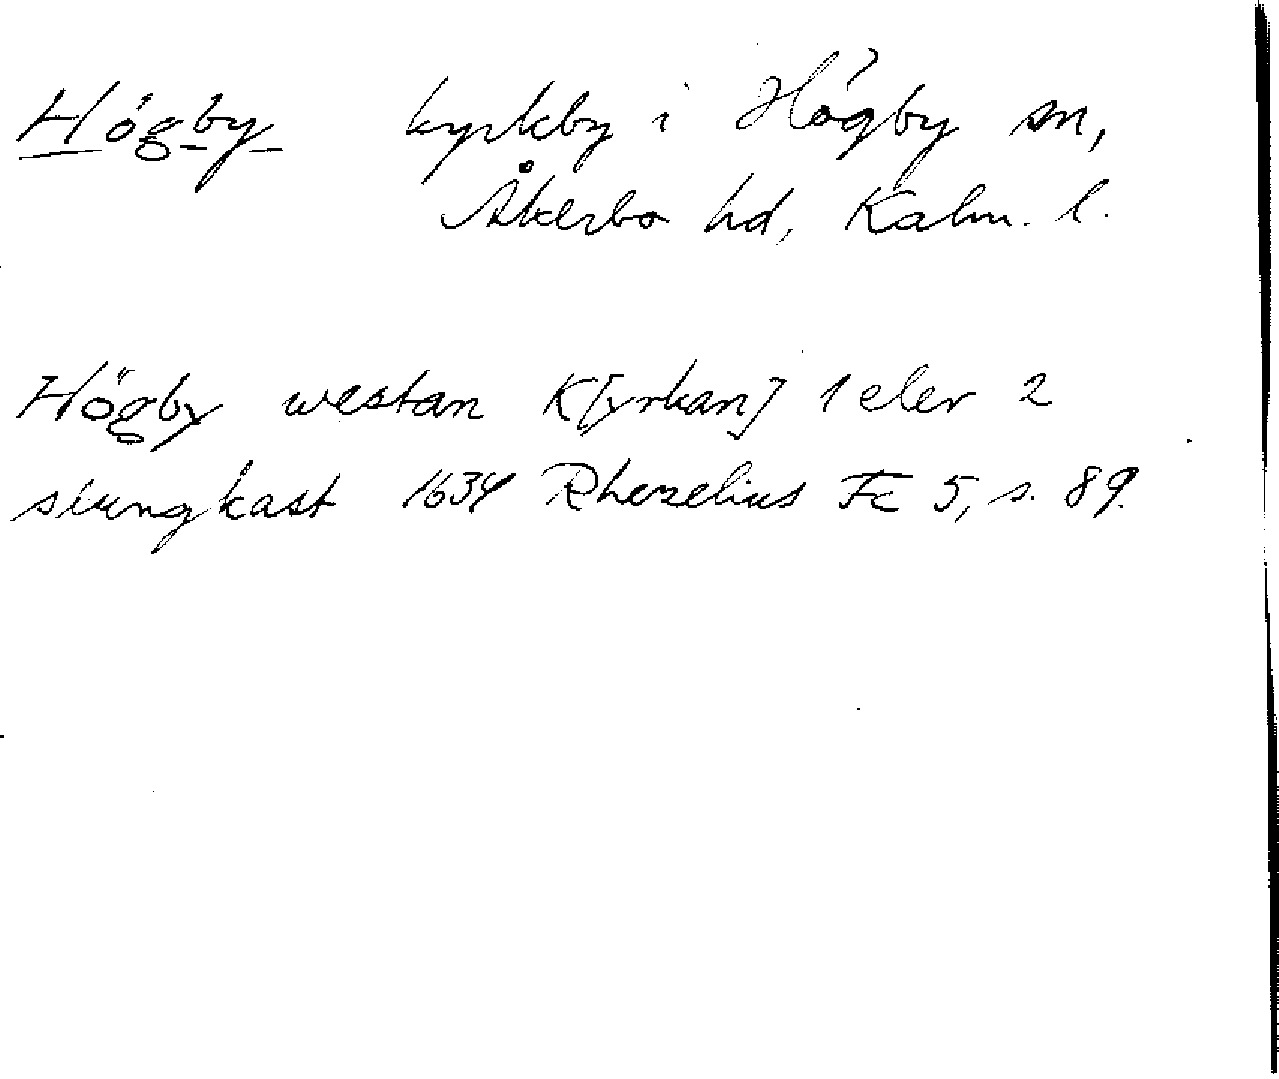 Högby kyrkby i Högby sn,
Åkerbo hd, Kalm. l.
Högby westan K[yrkan] 1 eler 2
slungkast 1634 Rhezelius Fc 5, s. 89.